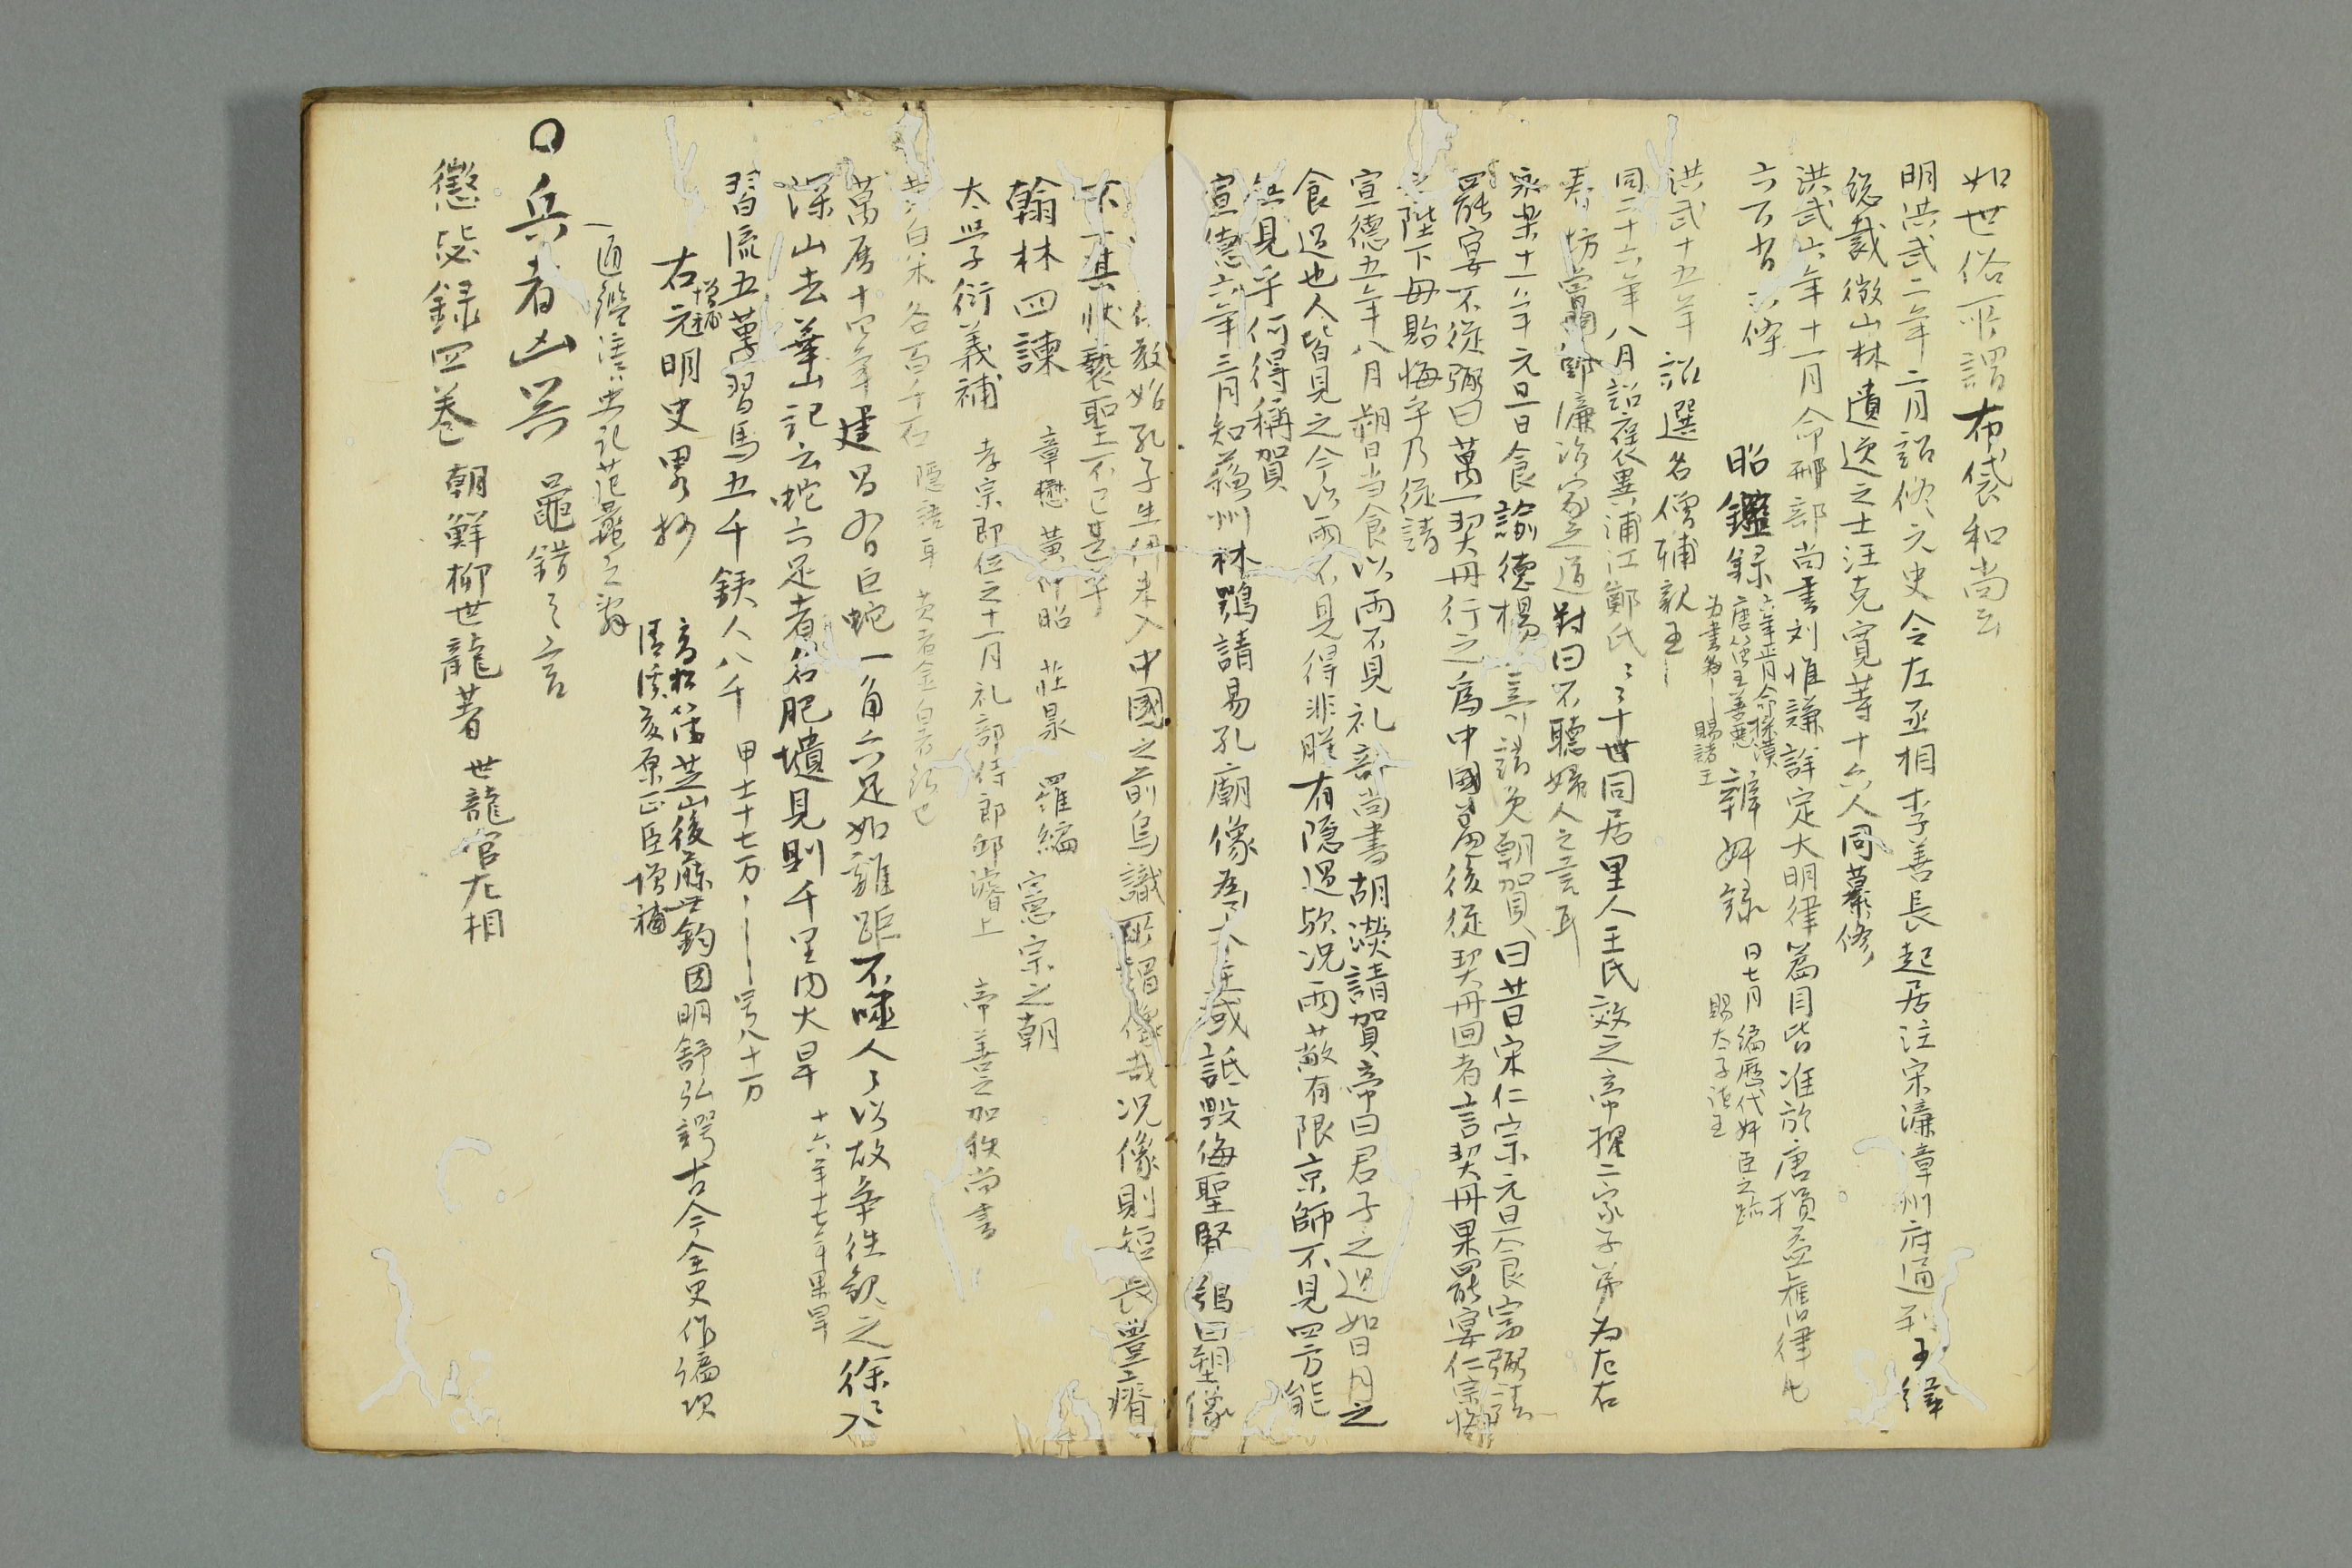 如世俗所謂布袋和尚云
明洪武二年二月詔修元史令左丞相李善長起居注宋濂漳州府通判王褘
総裁徴山林遺逸之士汪克寛等十六人同纂修
洪武六年十一月命刑部尚書刘惟謙詳定大明律篇目皆准於唐損益旧律七
六百有六條
昭鑑録
六年三月命採漢
唐藩王善悪
为書名｜賜諸王
辨奸録
日七月編歴代奸臣之跡
賜太子諸王
洪武十五年詔選名僧輔親王
同二十六年八月詔旌表異浦江鄭氏〻〻十世同居里人王氏效之帝擢二家子弟为左右
春坊嘗問鄭濂治家之道對曰不聽婦人之言耳
永楽十一年元旦日食諭德楊士奇請免朝賀曰昔宋仁宗元旦日食富弼請
罷宴不從弼曰萬一契丹行之為中國羞後従契丹回者言契丹果罷宴仁宗悔
陛下毋貽悔乎乃従請
宣徳五年八月朔日当食以雨不見礼部尚書胡濙請賀帝曰君子之過如日月之
食過也人皆見之今以雨不見得非朕有隠過歟况雨蔽有限京師不見四方能
無見乎何得稱賀
宣德六年三月知蘇州林鶚請易孔廟像為木主或詆毀侮聖賢鶚曰塑像
仏教始孔子生佛未入中國之前烏識所謂像哉况像則短長豐瘠
不真状褻聖不已甚乎
翰林四諫 章懋 黃仲昭 莊㫤 羅綸 憲宗之朝
太学衍義補 孝宗即位之十一月礼部侍郎邱濬上 帝善之加秩尚書
黃白米各百千石 隠語耳 黃者金白者銀也
萬曆十四年建昌有巨蛇一角六足如雞距不噬人〻以故争徃観之徐〻入
深山去華山記云蛇六足者名肥𧔥見則千里内大旱 十六年十七年果旱
習流五萬習馬五千鋏人八千 甲士十七万｜号八十万
右増補元明史畧抄
高松藩芝山後藤世鈞因明舒弘諤古今全史作編次
信濃 原正臣増補
通鑑 范蠡之辞
○兵者凶器 鼂錯之言
懲毖録四巻 朝鮮柳世龍著 世龍官左相